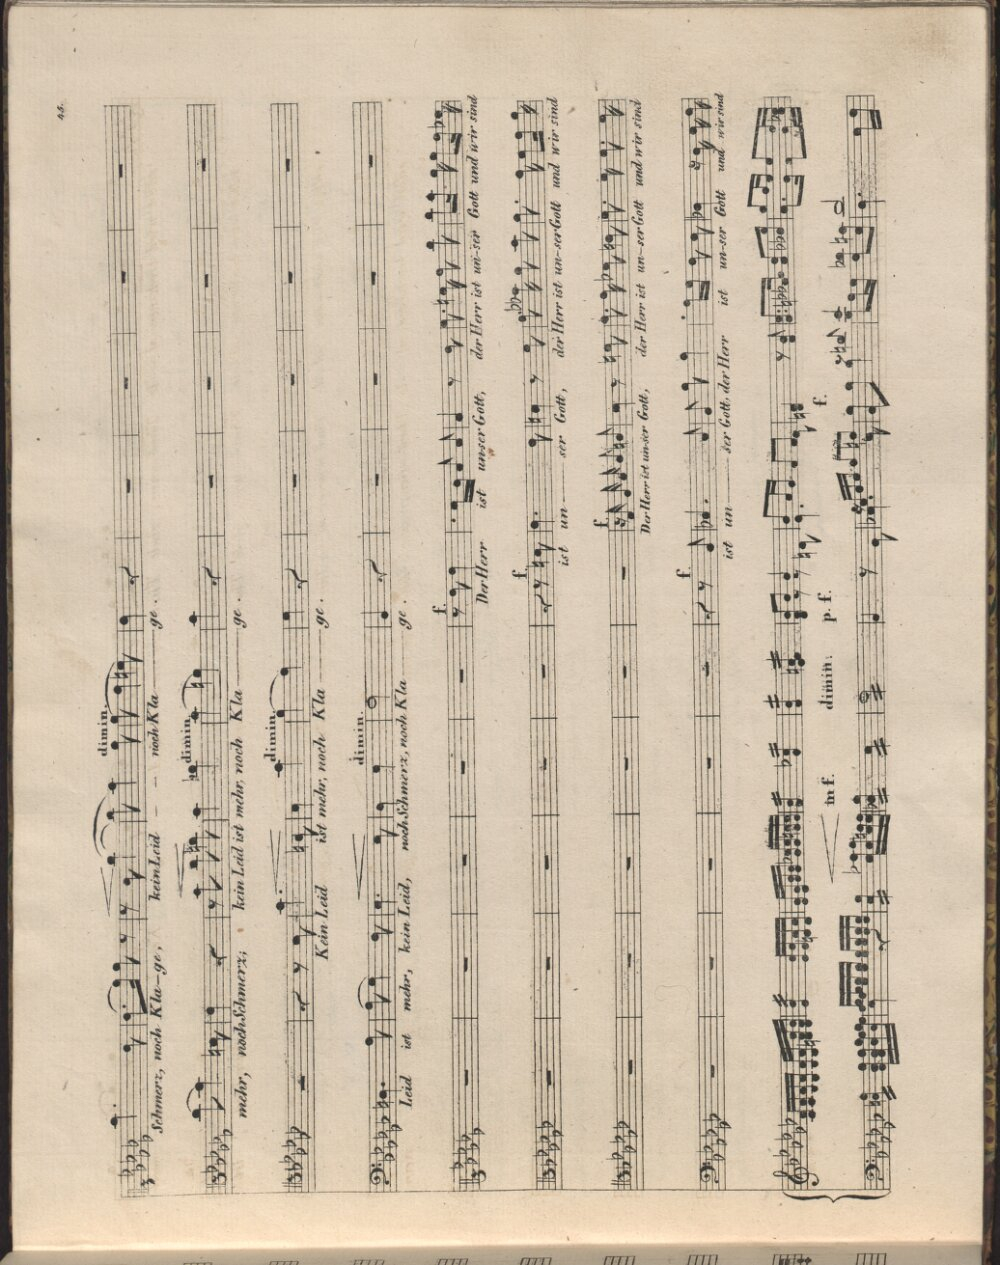 45.
dimin.
Schmerz, noch Kla-ge, kein Leid - - noch Kla-ge.
dimin.
mehr, noch Schmerz; kein Leid ist mehr, noch Kla-ge.
dimin.
Kein Leid ist mehr, noch Kla-ge.
dimin.
Leid ist mehr, kein Leid, noch Schmerz, noch Kla-ge.
f.
Der Herr ist unser Gott, der Herr ist un-ser Gott und wir sind
f.
ist un-ser Gott, der Herr ist un-ser Gott und wir sind
f.
Der Herr ist unser Gott, der Herr ist un-ser Gott und wir sind
f.
ist un-ser Gott, der Herr ist un-ser Gott und wir sind
mf. dimin: p. f. f.